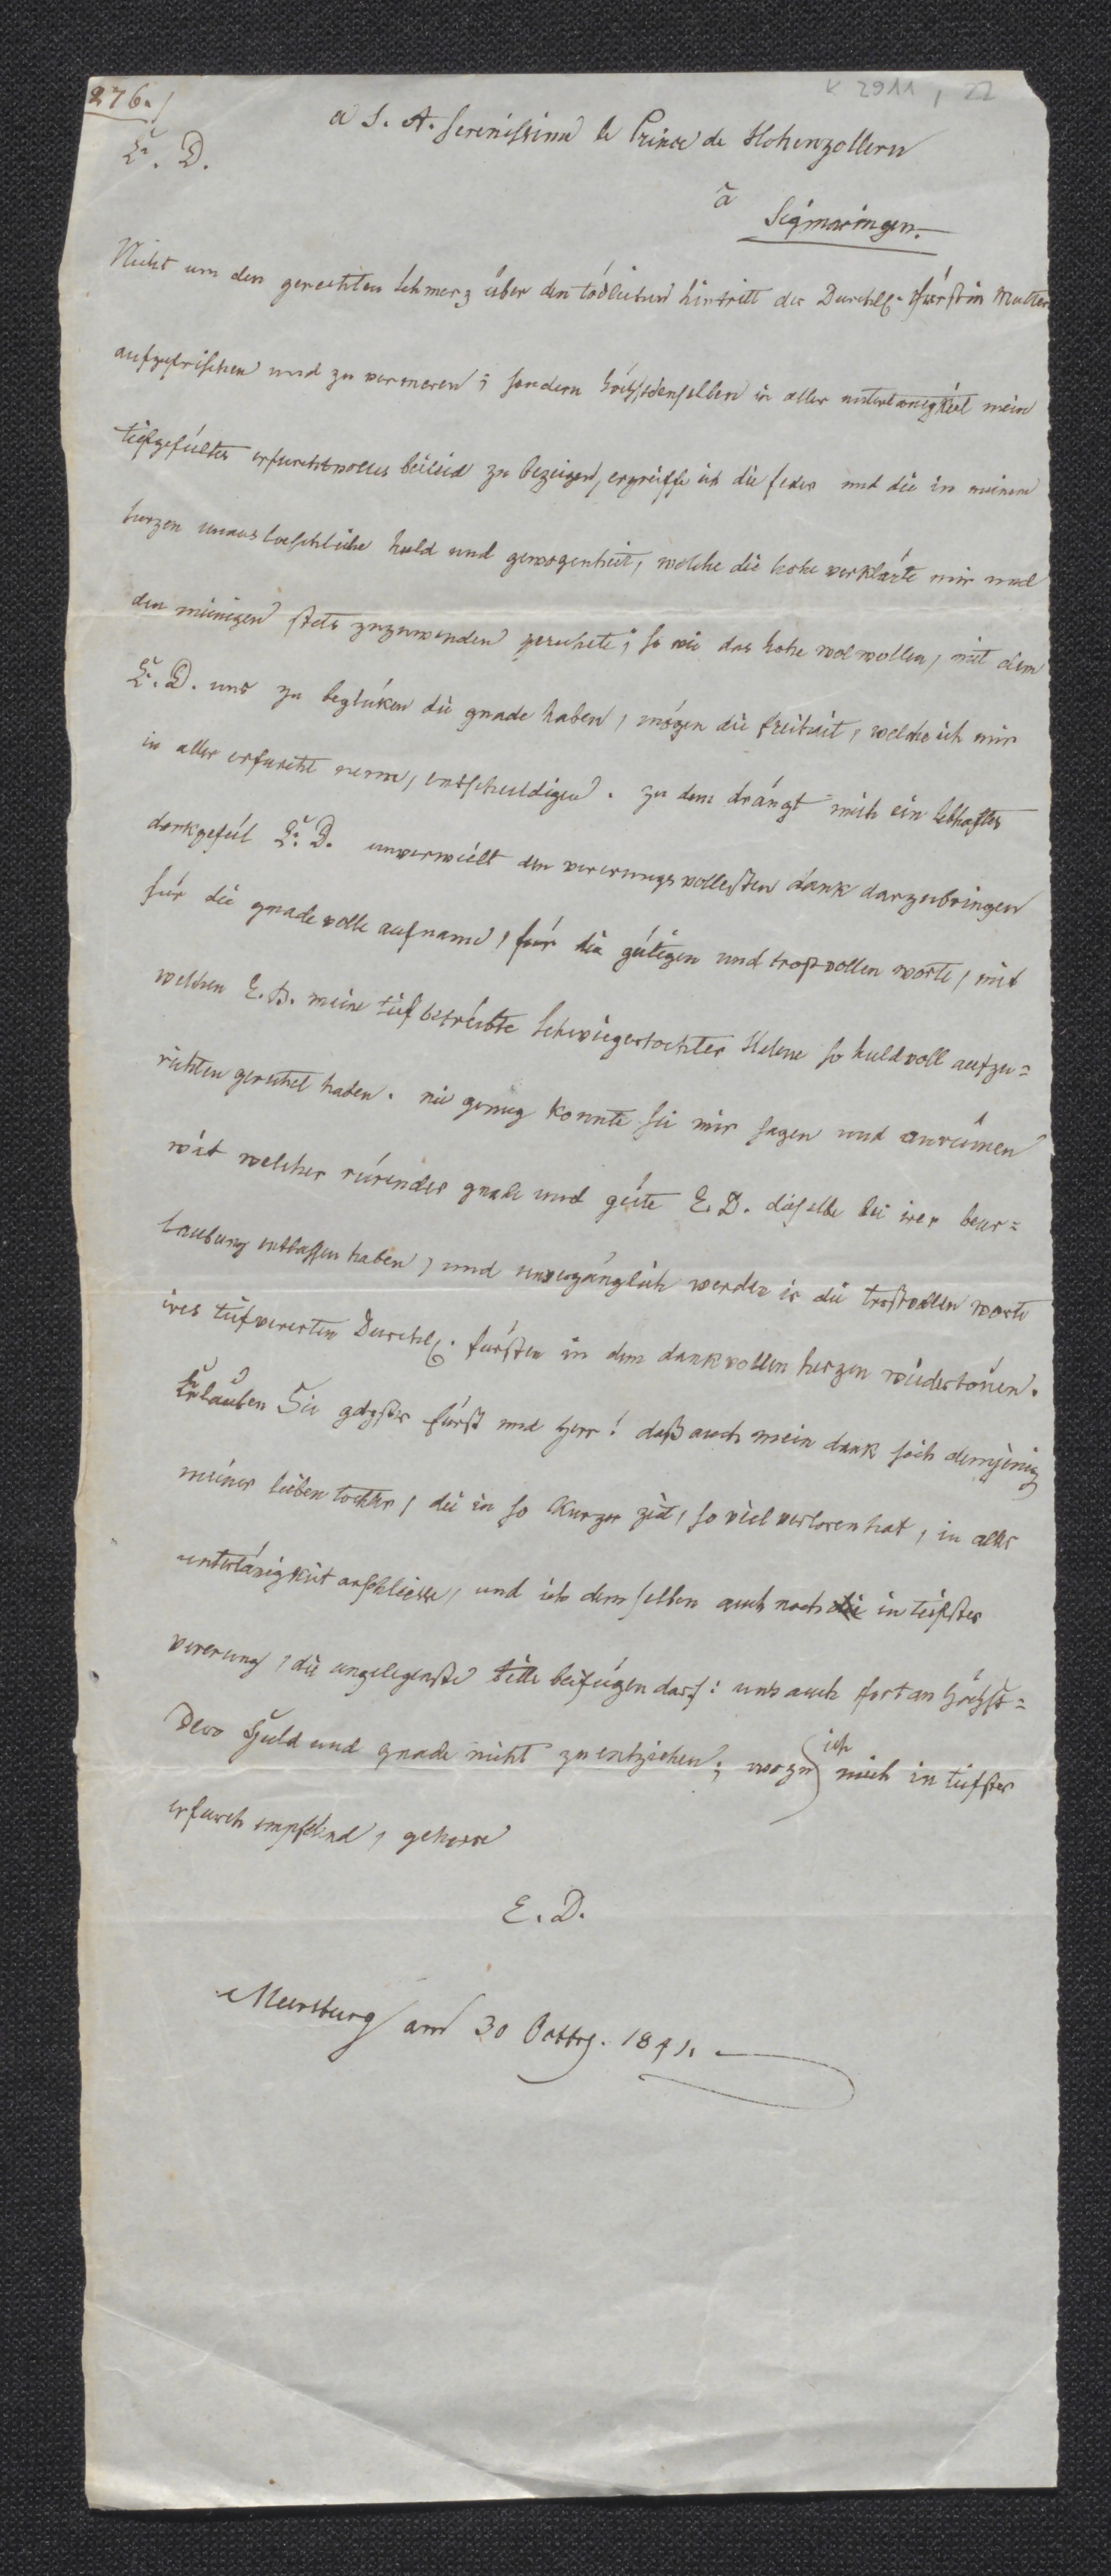 K 2911, 22
276./
a S. A. serenissime le Prince de Hohenzollern
E. D.
à
Sigmaringen.
Nicht um den gerechten schmerz über den tödlichen hintritt der Durchl. fürstin Mutter
aufzufrischen und zu vermeren; sondern höchstdenselben in aller untertänigkeit mein
tiefgefültes erfurchtvolles beileid zu bezeigen, ergreiffe ich die feder und die in meinem
herzen unausloeschliche huld und gewogenheit, welche die hohe verklärte mir und
den meinigen stets zuzuwenden geruhete; so wie das hohe wolwollen, mit dem
E. D. uns zu beglüken die gnade haben, mögen die freiheit, welche ich mir
in aller erfurcht neme, entschuldigen. zu dem drängt mich ein lebhaftes
dankgefül E. D. unverweilt den vererungsvollesten dank darzubringen
für die gnadevolle aufname, für die gütigen und trostvollen worte, mit
welchen E. D. meine tief betrübte schwiegertochter Helene so huldvoll aufzu=
richten geruhet haben. nie genug konnte sie mir sagen und anrümen
mit welcher rürender gnade und güte E. D. dieselbe bei irer beur=
laubung entlassen haben, und unvergänglich werden ir die trostvollen worte
ires tiefvererten Durchl. fürsten in dem dankvollen herzen wiedertönen.
Erlauben Sie gdgster fürst und herr! daß auch mein dank sich demjenig
meiner lieben tochter, die in so kurzer zeit, so viel verloren hat, in aller
untertänigkeit anschliesse, und ich demselben auch noch in tiefster
vererung, die angelegenste bitte beifügen darf: uns auch fortan höchst=
Dero Huld und gnade nicht zu entziehen; wozu ich mich in tiefster
erfurch empfelend, geharre
E. D.
Meersburg am 30 Octbr. 1841.